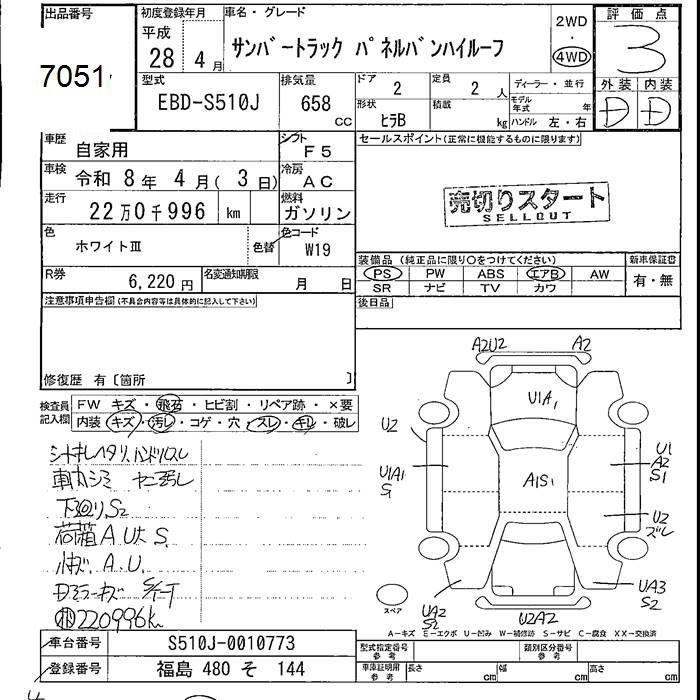 出品番号
7051
初度登録年月
平成
28年 4月
車名・グレード
サンバートラック パネルバンハイルーフ
2WD
・
4WD
評価点
3
外装 内装
D D
型式
EBD-S510J
排気量
658 CC
ドア 2
定員 2 人
ディーラー・並行
モデル年式 年
形状 ヒラB
積載 kg
ハンドル 左・右
車歴 自家用
シフト F5
車検 令和 8年 4月( 3日)
冷房 AC
走行 22万0千996 km
燃料 ガソリン
色 ホワイトⅢ
色替
色コード W19
R券 6,220円
名変通知期限 月 日
セールスポイント(正常に機能するものに限ります)
売切りスタート
SELLOUT
装備品 (純正品に限り○をつけてください)
新車保証書
PS PW ABS エアB AW
SR ナビ TV カワ
有・無
後日品
注意事項申告欄(不具合内容等は具体的に記入して下さい)
修復歴 有〔箇所 〕
検査員記入欄
FW キズ・飛石・ヒビ割・リペア跡・×要
内装 キズ・汚レ・コゲ・穴・スレ・キレ・破レ
シートキレヘタリ、ハンドルスレ
車内シミ ヤニ汚レ
下廻り S2
荷箱 A U S
A. U.
Dミラーキズ
220996k
A2U2 A2
U1A1
U2
U1A1
S1
A1S1
U1
A2
S1
U2
ズレ
スペア
UA2
S2
U2A2
UA3
S2
A-キズ E-エクボ U-凹み W-補修跡 S-サビ C-腐食 XX-交換済
車台番号 S510J-0010773
登録番号 福島 480 そ 144
型式指定番号 参考
類別区分番号 参考
車庫証明用 参考
長さ cm
幅 cm
高さ cm